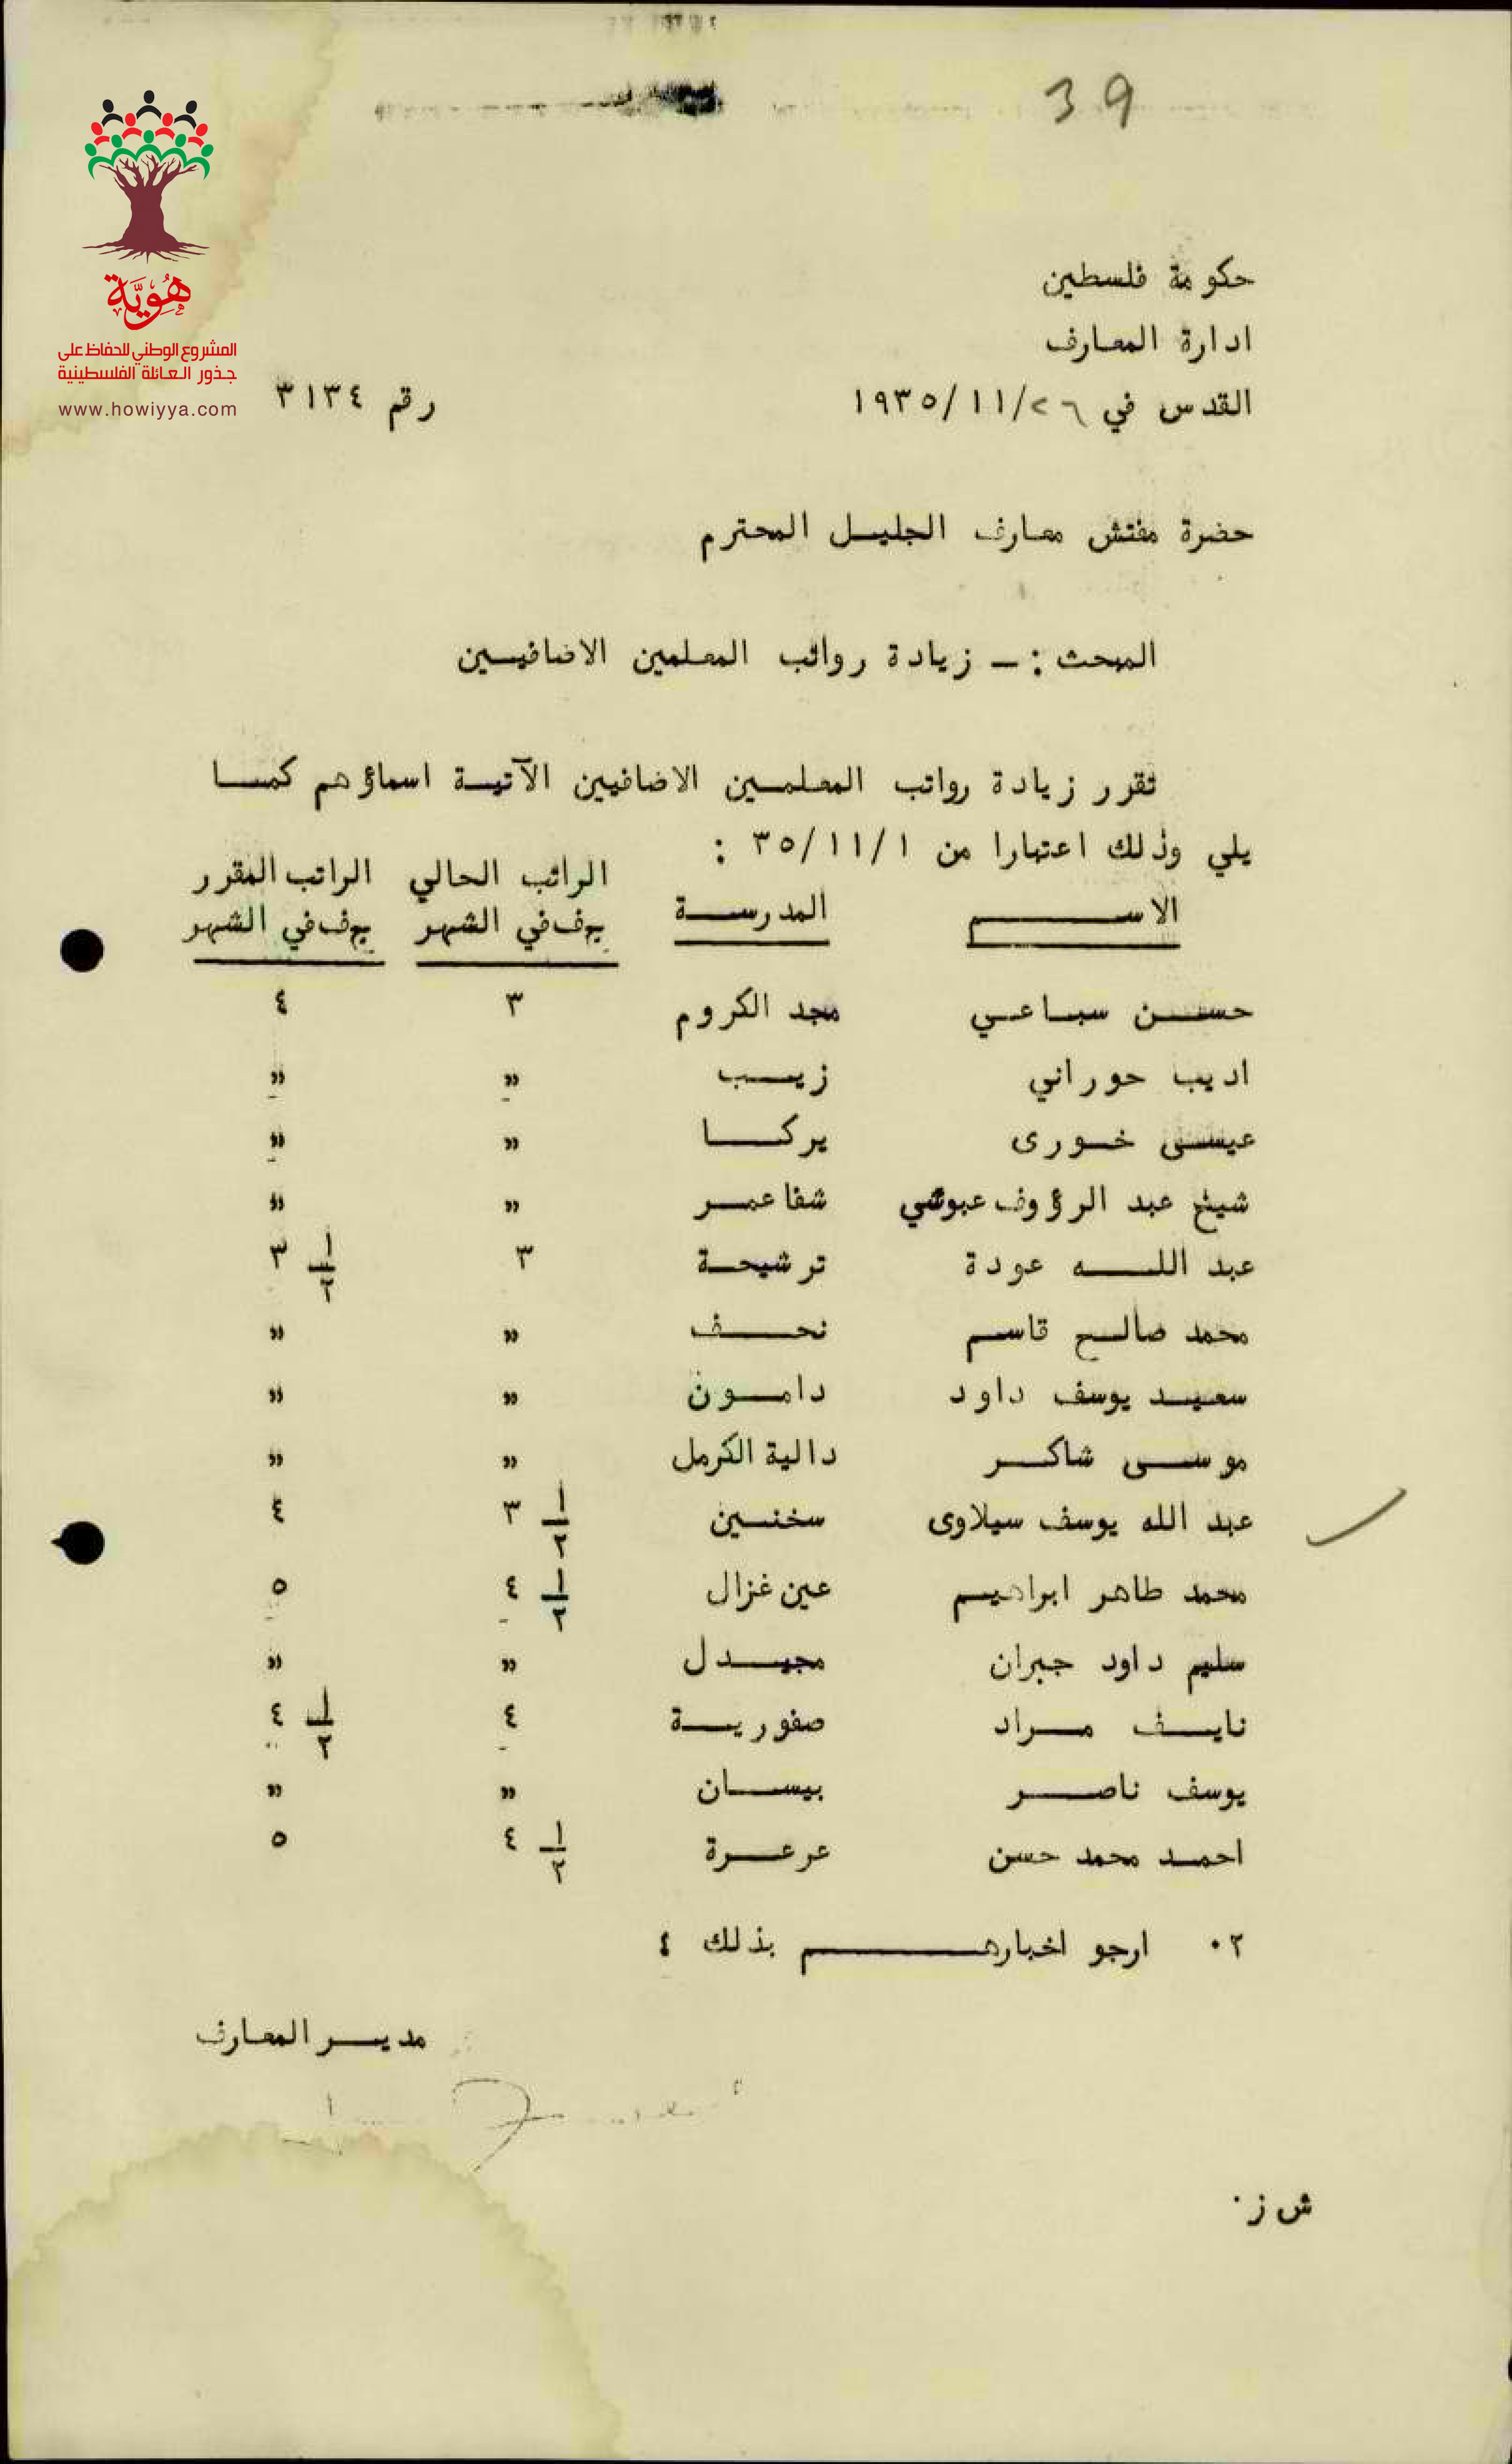 39
هُوِيَّة
المشروع الوطني للحفاظ على
جذور العائلة الفلسطينية
www.howiyya.com
حكومة فلسطين
ادارة المعارف
القدس في ٢٦/١١/١٩٣٥ رقم ٣١٣٤
حضرة مفتش معارف الجليل المحترم
المبحث :ــ زيادة رواتب المعلمين الاضافيين
تقرر زيادة رواتب المعلمين الاضافيين الآتية اسماؤهم كما
يلي وذلك اعتبارا من ٣٥/١١/١ :
الاسم المدرسة الراتب الحالي الراتب المقرر
ج٠ف في الشهر ج٠ف في الشهر
حسن سباعي مجد الكروم ٣ ٤
اديب حوراني زيب " "
عيسى خورى يركا " "
شيخ عبد الرؤوف عبوشي شفا عمر " "
عبد الله عودة ترشيحة ٣ ٣ ١/٢
محمد صالح قاسم نحف " "
سعيد يوسف داود دامون " "
موسى شاكر دالية الكرمل " "
عبد الله يوسف سيلاوى سخنين ٣ ١/٢ ٤
محمد طاهر ابراهيم عين غزال ٤ ١/٢ ٥
سليم داود جبران مجيدل " "
نايف مراد صفورية ٤ ٤ ١/٢
يوسف ناصر بيسان " "
احمد محمد حسن عرعرة ٤ ١/٢ ٥
٢٠ ارجو اخبارهم بذلك ؛
مدير المعارف
ش ز٠